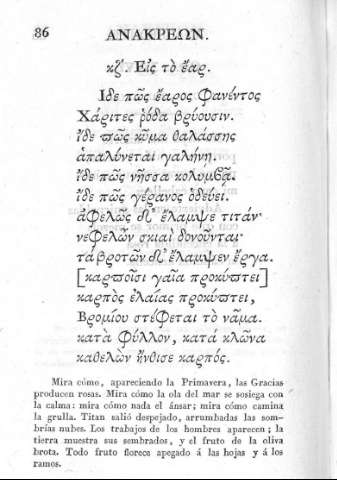 86 ΑΝΑΚΡΕΩΝ.
κζʹ. Εἰς τὸ ἔαρ.
Ιδε πῶς ἔαρος φανέντος
Χάριτες ῥόδα βρύουσιν.
ἴδε ϖῶς κῦμα θαλάσσης
ἁπαλύνεται γαλήνῃ.
ἴδε πῶς νῆσσα κολυμβᾷ.
ἴδε πῶς γέρανος ὁδεύει.
ἀφελῶς δ' ἔλαμψε τιτάν·
νεφελῶν σκιαὶ δονοῦνται·
τὰ βροτῶν δ' ἔλαμψεν ἔργα.
[καρϖοῖσι γαῖα προκύϖτει]
καρπὸς ἐλαίας προκύϖτει,
Βρομίου στέφεται τὸ νᾶμα.
κατὰ φύλλον, κατὰ κλῶνα
καθελὼν ἤνθισε καρπός.
Mira cómo, apareciendo la Primavera, las Gracias
producen rosas. Mira cómo la ola del mar se sosiega con
la calma: mira cómo nada el ánsar; mira cómo camina
la grulla. Titan salió despejado, arrumbadas las som-
brías nubes. Los trabajos de los hombres aparecen; la
tierra muestra sus sembrados, y el fruto de la oliva
brota. Todo fruto florece apegado á las hojas y á los
ramos.